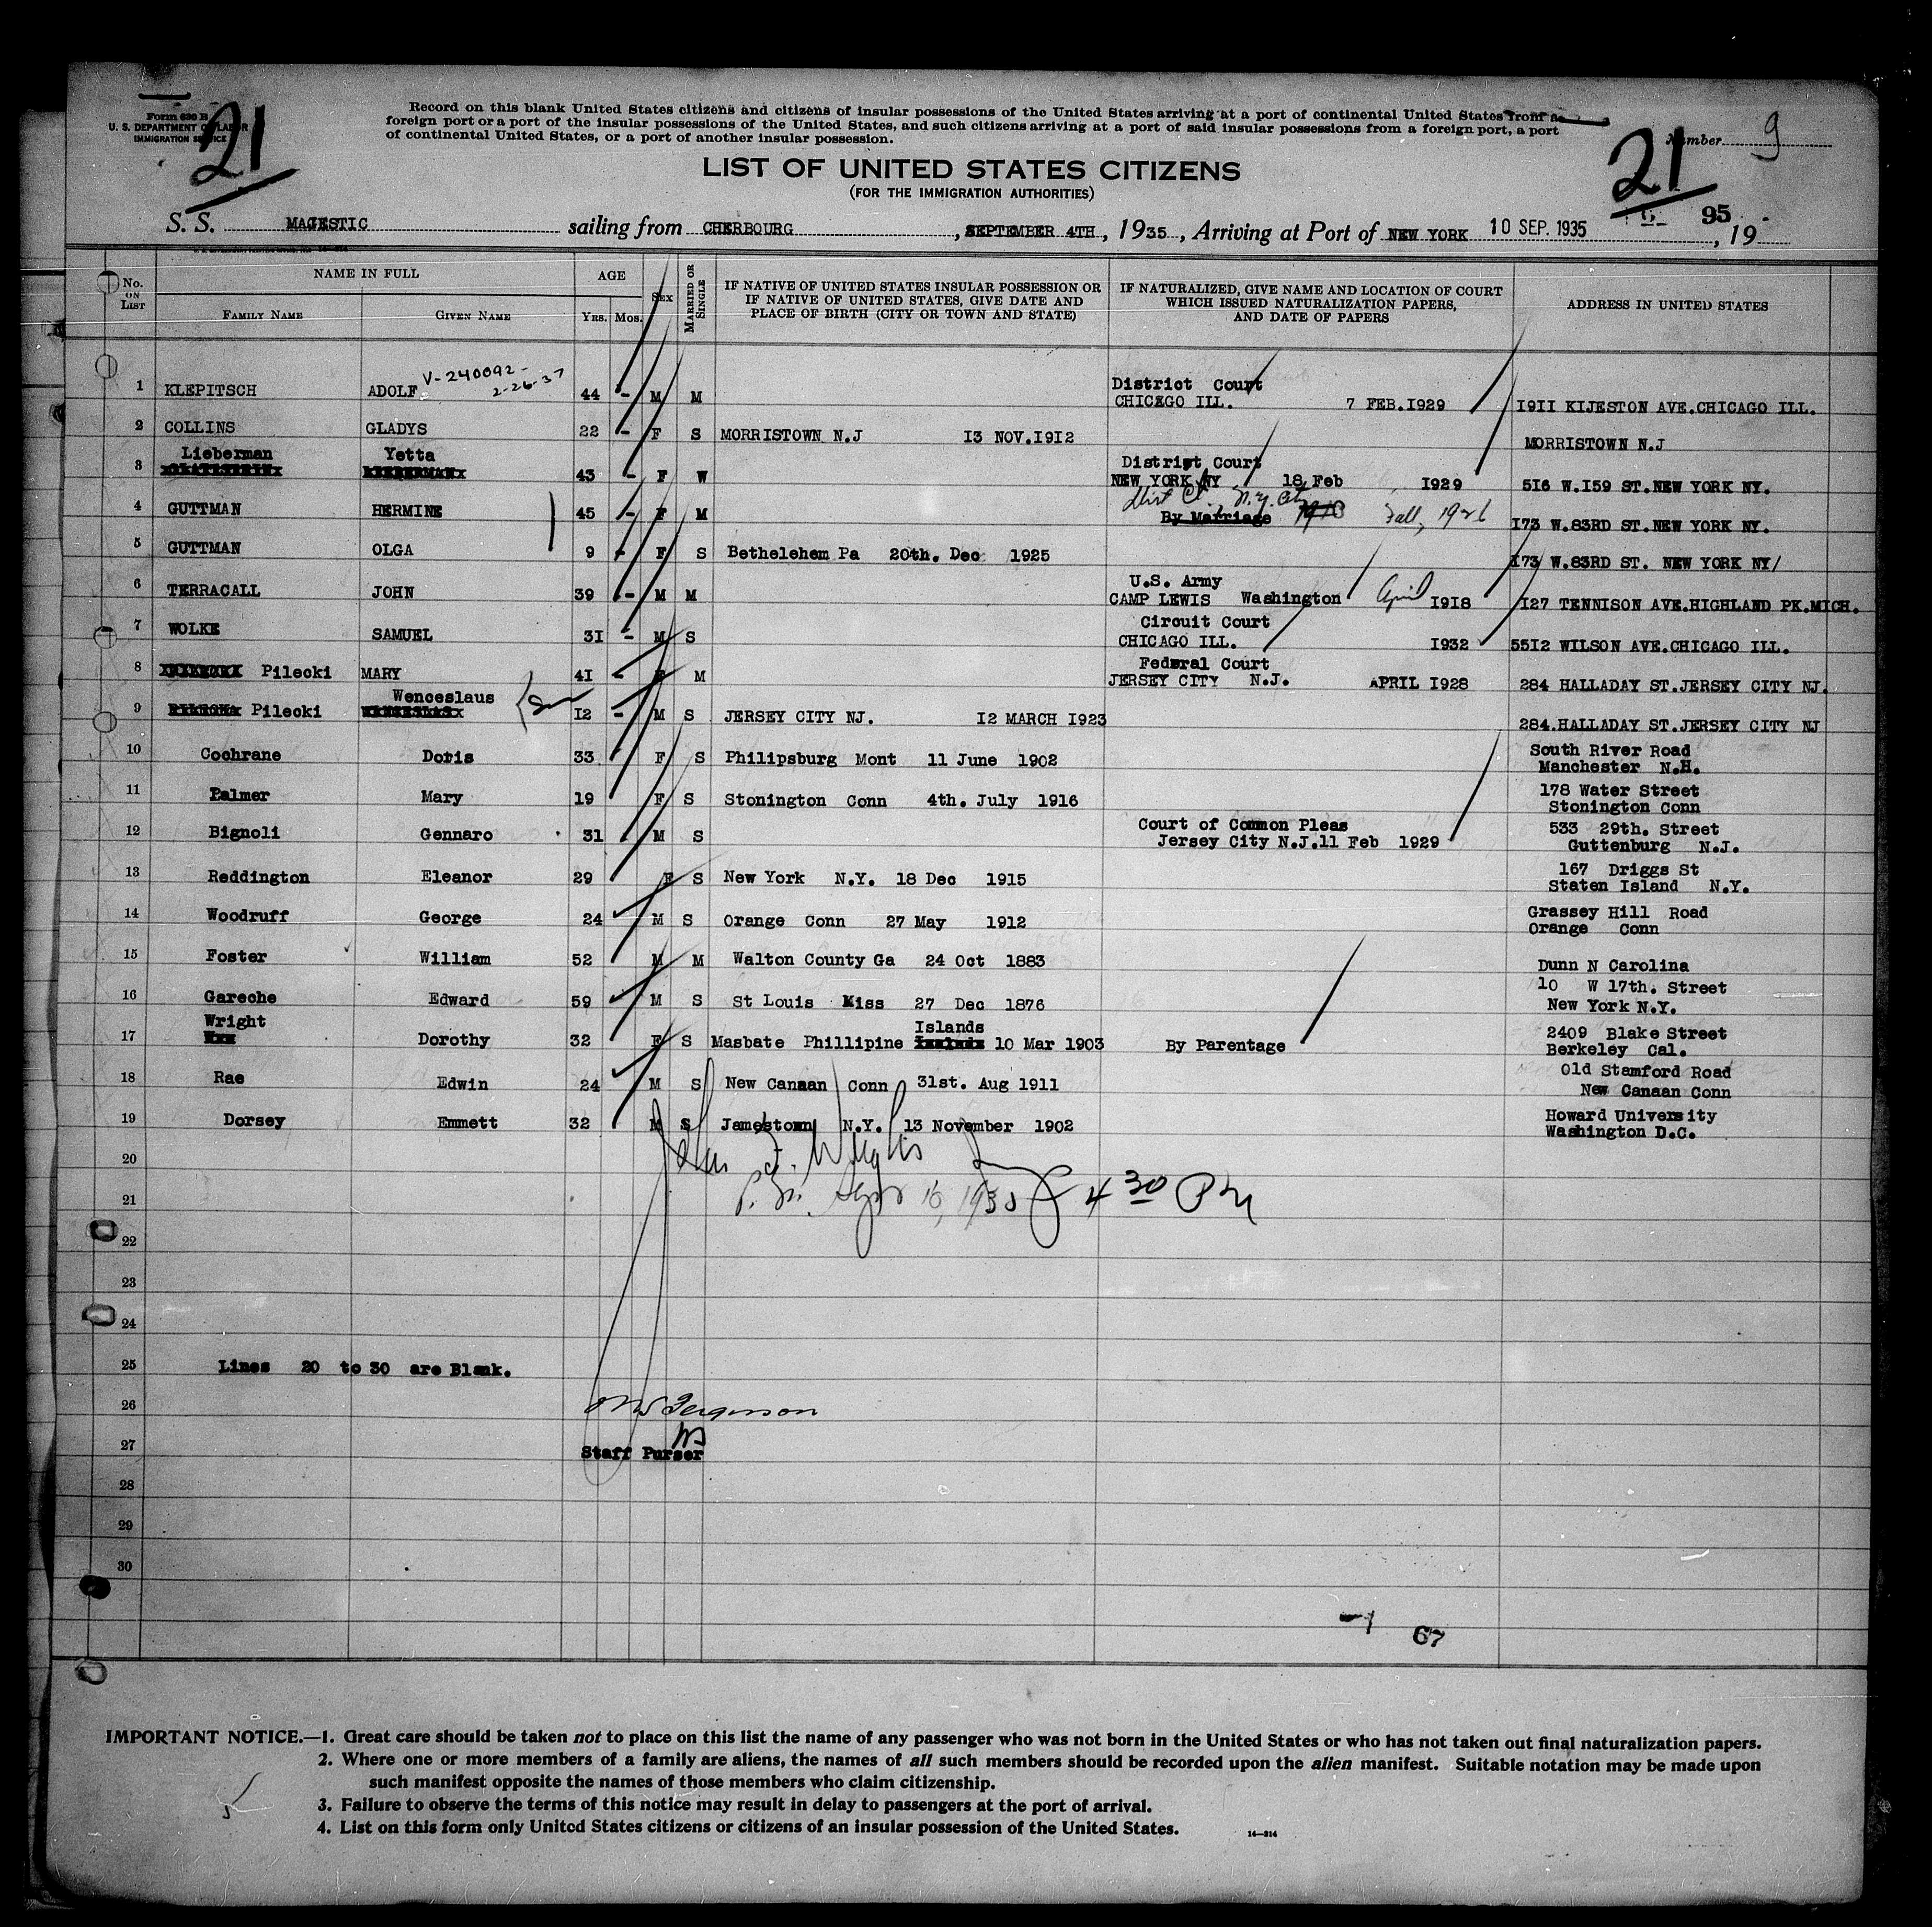 Form 630 B
U. S. DEPARTMENT OF LABOR
IMMIGRATION SERVICE
21
Record on this blank United States citizens and citizens of insular possessions of the United States arriving at a port of continental United States from a
foreign port or a port of the insular possessions of the United States, and such citizens arriving at a port of said insular possessions from a foreign port, a port
of continental United States, or a port of another insular possession.
Number 9
21
LIST OF UNITED STATES CITIZENS
(FOR THE IMMIGRATION AUTHORITIES)
95
S. S. MAGESTIC sailing from CHERBOURG, SEPTEMBER 4TH, 1935, Arriving at Port of NEW YORK 10 SEP. 1935, 19
No. ON LIST NAME IN FULL AGE SEX MARRIED OR SINGLE IF NATIVE OF UNITED STATES INSULAR POSSESSION OR IF NATIVE OF UNITED STATES, GIVE DATE AND PLACE OF BIRTH (CITY OR TOWN AND STATE) IF NATURALIZED, GIVE NAME AND LOCATION OF COURT WHICH ISSUED NATURALIZATION PAPERS, AND DATE OF PAPERS ADDRESS IN UNITED STATES
FAMILY NAME GIVEN NAME YRS. MOS.
V-240092-
2-26-37
District Court
1 KLEPITSCH ADOLF 44 - M M CHICAGO ILL. 7 FEB.1929 1911 KIJESTON AVE.CHICAGO ILL.
2 COLLINS GLADYS 22 - F S MORRISTOWN N.J 13 NOV.1912 MORRISTOWN N.J
Lieberman Yetta District Court
3 43 - F W NEW YORK NY 18 Feb 1929 516 W.159 ST.NEW YORK NY.
Dist Ct. N.Y. City
4 GUTTMAN HERMINE 45 - F M By Marriage 1913 Fall, 1926 173 W.83RD ST.NEW YORK NY.
5 GUTTMAN OLGA 9 - F S Bethelehem Pa 20th. Dec 1925 173 W.83RD ST. NEW YORK NY/
U.S. Army
6 TERRACALL JOHN 39 - M M CAMP LEWIS Washington April 1918 127 TENNISON AVE.HIGHLAND PK.MICH.
Circuit Court
7 WOLKE SAMUEL 31 - M S CHICAGO ILL. 1932 5512 WILSON AVE.CHICAGO ILL.
Federal Court
8 Pilecki MARY 41 F M JERSEY CITY N.J. APRIL 1928 284 HALLADAY ST.JERSEY CITY NJ.
Wenceslaus
9 Pilecki 12 - M S JERSEY CITY NJ. 12 MARCH 1923 284.HALLADAY ST.JERSEY CITY NJ
South River Road
10 Cochrane Doris 33 F S Philipsburg Mont 11 June 1902 Manchester N.H.
178 Water Street
11 Palmer Mary 19 F S Stonington Conn 4th. July 1916 Stonington Conn
Court of Common Pleas 533 29th. Street
12 Bignoli Gennaro 31 M S Jersey City N.J.11 Feb 1929 Guttenburg N.J.
167 Driggs St
13 Reddington Eleanor 29 F S New York N.Y. 18 Dec 1915 Staten Island N.Y.
Grassey Hill Road
14 Woodruff George 24 M S Orange Conn 27 May 1912 Orange Conn
15 Foster William 52 M M Walton County Ga 24 Oct 1883 Dunn N Carolina
10 W 17th. Street
16 Gareche Edward 59 M S St Louis Miss 27 Dec 1876 New York N.Y.
Wright Islands 2409 Blake Street
17 Dorothy 32 F S Masbate Phillipine 10 Mar 1903 By Parentage Berkeley Cal.
Old Stamford Road
18 Rae Edwin 24 M S New Canaan Conn 31st. Aug 1911 New Canaan Conn
Howard University
19 Dorsey Emmett 32 M S Jamestown N.Y. 13 November 1902 Washington D.C.
20
21 1935 4 30 PM
22
23
24
25 Lines 20 to 30 are Blank.
26 Ferguson
27 Staff Purser
28
29
30
-1 67
IMPORTANT NOTICE.—1. Great care should be taken not to place on this list the name of any passenger who was not born in the United States or who has not taken out final naturalization papers.
2. Where one or more members of a family are aliens, the names of all such members should be recorded upon the alien manifest. Suitable notation may be made upon
such manifest opposite the names of those members who claim citizenship.
3. Failure to observe the terms of this notice may result in delay to passengers at the port of arrival.
4. List on this form only United States citizens or citizens of an insular possession of the United States.
14—214